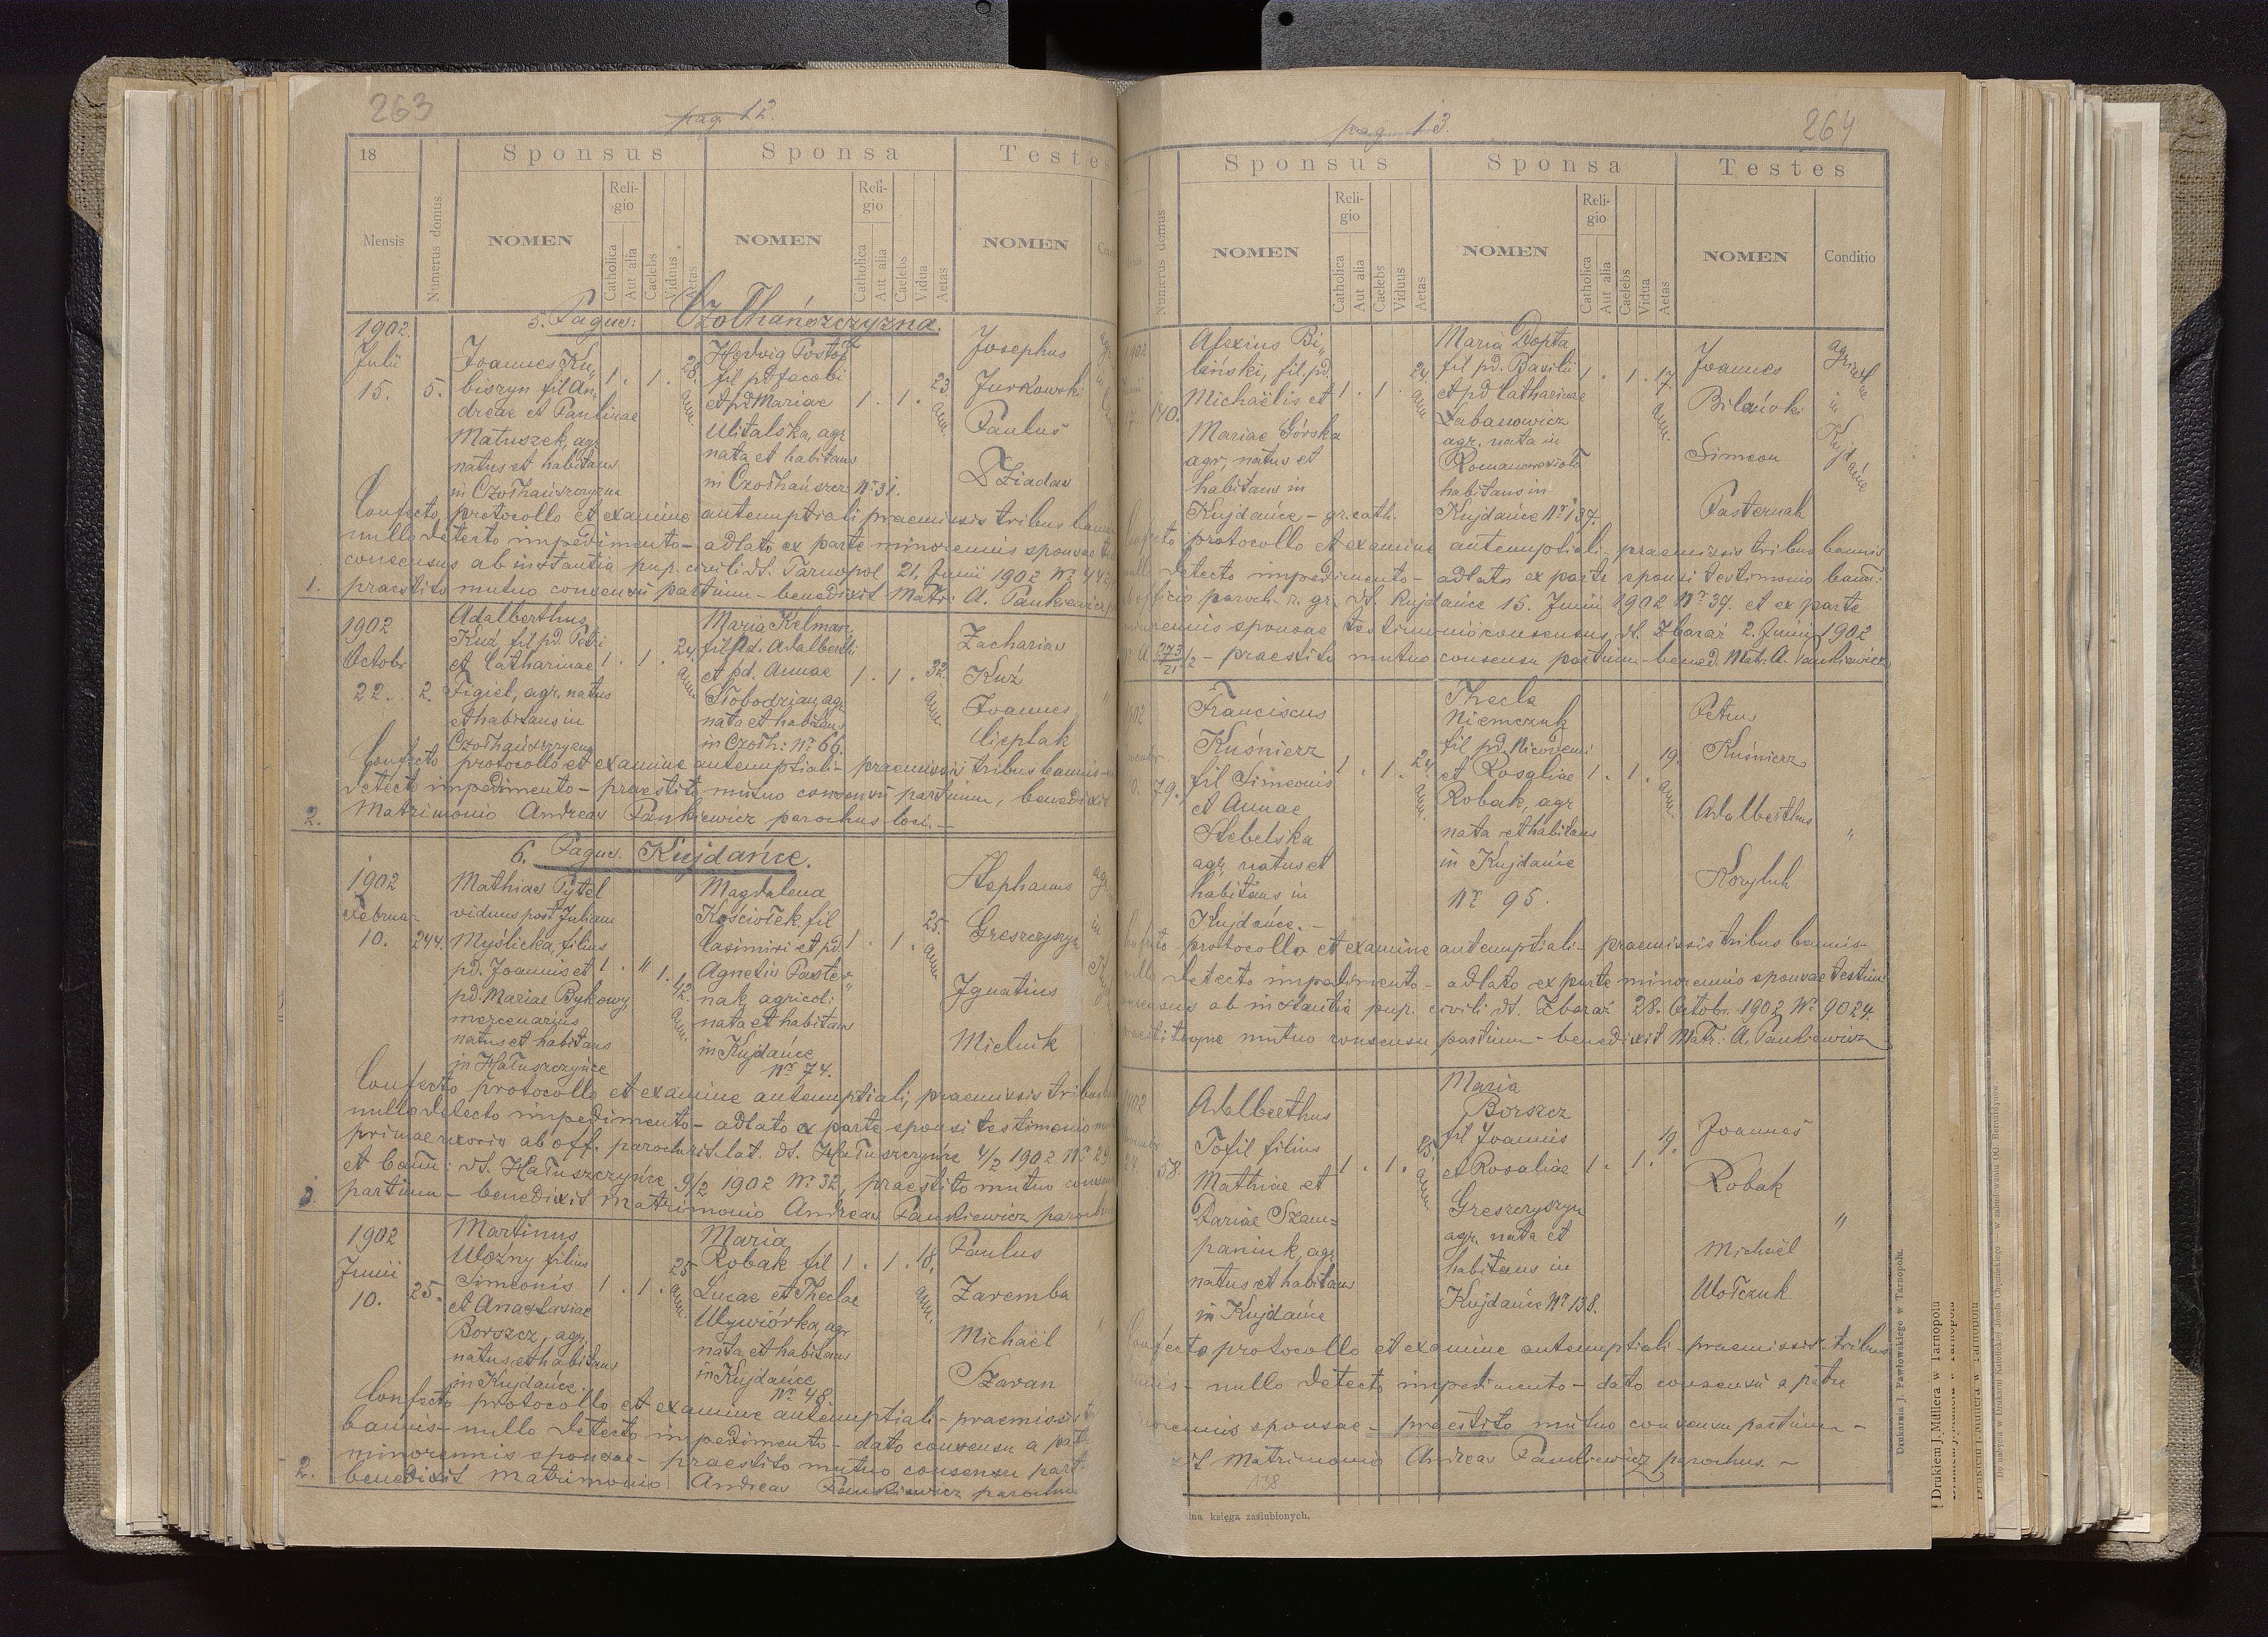 263
pag. 12.
18
Sponsus
Sponsa
Testes
Mensis
Numerus domus
NOMEN
Religio
Catholica
Aut alia
Caelebs
Viduus
Aetas
NOMEN
Religio
Catholica
Aut alia
Caelebs
Vidua
Aetas
NOMEN
5. Pagus: Czołhańszczyzna.
1902.
Julii
15.
5.
Joannes Ku„
biszyn fil An„
dreae et Paulinae
Matuszek, agr
natus et habitans
in Czołhańszczyzna
1. 1. 28. ann.
Hedvig
fil pd Jacobi
et pd Mariae
Witalska, agr
nata et habitans
in Czołhańszcz Nr 31.
1. 1. 23. ann.
Josephus
Jurkowski
Paulus
Dziadas
Confecto protocollo et examine antenuptiali praemissis tribus
nullo detecto impedimento - adlato ex parte minorennis sponsae
consensus ab instantia pup. civili dt. Tarnopol 21. Junii 1902 Nr
1. praestito mutuo consensu partium - benedixit Matr. A. Pankiewicz
1902
Octobr
22.
2.
Adalberthus
Kuź fil pd. Petri
et Catharinae
Figiel, agr. natus
et habitans in
Czołhańszczyzna
1. 1. 24. ann.
Maria Kelman
fil pd. Adalberthi
et pd. Annae
Słobodzian agr
nata et habitans
in Czołh: Nr 66.
1. 1. 32. ann.
Zacharias
Kuź
Joannes
Cieplak
Confecto protocollo et examine antenuptiali - praemissis tribus bannis -
detecto impedimento - praestito mutuo consensu partium, benedixit
2. Matrimonio Andreas Pankiewicz parochus loci. -
6. Pagus. Kujdańce.
1902
Februa-
10.
244.
Mathias Pytel
viduus post Juliam
Myślicka, filius
pd. Joannis et
pd. Mariae Bykowy,
mercenarius
natus et habitans
in Hałuszczyńce
1. " 1. 42. ann.
Magdalena
Kościołek fil
Casimiri et pd.
Agnetis Paster„
nak agricoli:
nata et habitans
in Kujdańce
Nr 74.
1. 1. 25. ann.
Stephanus
Greszczyszyn
Ignatius
Mielnik
Confecto protocollo et examine antenuptiali, praemissis tribus
nullo detecto impedimento - adlato ex parte sponsi testimonio
primae uxoris ab off. paroch. rit. lat. dt. Hałuszczyńce 4/2 1902 Nr 29
et bann: dt. Hałuszczyńce 9/2 1902 Nr 32, praestito mutuo consensu
partium - benedixit Matrimonio Andreas Pankiewicz parochus
1902
Junii
10.
25.
Martinus
Woźny filius
Simeonis
et Anastasiae
Borszcz, agr.
natus et habitans
in Kujdańce.
1. 1. 25 ann.
Maria
Robak fil
Lucae et Theclae
Wywiórka, agr
nata et habitans
in Kujdańce
Nr 48.
1. 1. 18. ann.
Paulus
Zaremba
Michaël
Szaran
Confecto protocollo et examine antenuptiali - praemissis
bannis - nullo detecto impedimento - dato consensu a patre
minorennis sponsae - praestito mutuo consensu part.
2. benedixit Matrimonio Andreas Pankiewicz parochus
pag. 13.
264
Numerus domus
Sponsus
Sponsa
Testes
NOMEN
Religio
Catholica
Aut alia
Caelebs
Viduus
Aetas
NOMEN
Religio
Catholica
Aut alia
Caelebs
Vidua
Aetas
NOMEN
Conditio
1902
140.
Alexius Bi„
lański, fil. pd.
Michaëlis et
Mariae Górska
agr, natus et
habitans in
Kujdańce - gr. cath.
1. 1. 24. ann
Maria Dopta
fil pd. Basilii
et pd Catharinae
Łabasowicz
agr. nata in
habitans in
Kujdańce Nr 137.
1. 1. 17. ann.
Joannes
Bilański
Simeon
Pasternak
in Kujdańce
protocollo et examine antenuptiali - praemissis tribus bannis
detecto impedimento - adlato ex parte sponsi testimonio bann:
officio paroch. r. gr. dt. Kujdańce 15. Junii 1902 Nr 37. et ex parte
sponsae testimonio consensus dt. Zbaraż 2. Junii 1902
A. 273/21 1/2 - praestito mutuo consensu partium - bened. Matr. A. Pankiewicz
1902
79.
Franciscus
Kuśnierz
fil Simeonis
et Annae
Stebelska
agr. natus et
habitans in
Kujdańce. -
1. 1. 24. ann.
Thecla
Niemczuk
fil pd. Nicodemi
et Rosaliae
Robak, agr
nata et habitans
in Kujdańce
Nr 95.
1. 1. 19. ann.
Petrus
Kuśnierz
Adalberthus
"
protocollo et examine antenuptiali - praemissis tribus bannis -
nullo detecto impedimento - adlato ex parte minorennis sponsae testim
consensus ab instantia pup. civili dt. Zbaraż 28. Octobr. 1902 Nr 9024.
mutuo consensu partium - benedixit Matr: A. Pankiewicz
1902
24.
58.
Adalberthus
Tofil filius
Mathiae et
Dariae Szam=
paniuk, agr
natus et habitans
in Kujdańce
1. 1. 25. ann
Maria
Borszcz
fil Joannis
et Rosaliae
Greszczyszyn
agr. nata et
habitans in
Kujdańce Nr 138.
1. 1. 19.
Joannes
Robak
Michaël
Wołczuk.
"
Confecto protocollo et examine antenuptiali - praemissis tribus
bannis - nullo detecto impedimento - dato consensu a patre
sponsae - praestito mutuo consensu partium -
Matrimonio Andreas Pankiewicz parochus. -
138
księga zaślubionych.
Drukarnia J. Pawłowskiego w Tarnopolu.
Drukiem J. Millera w Tarnopolu